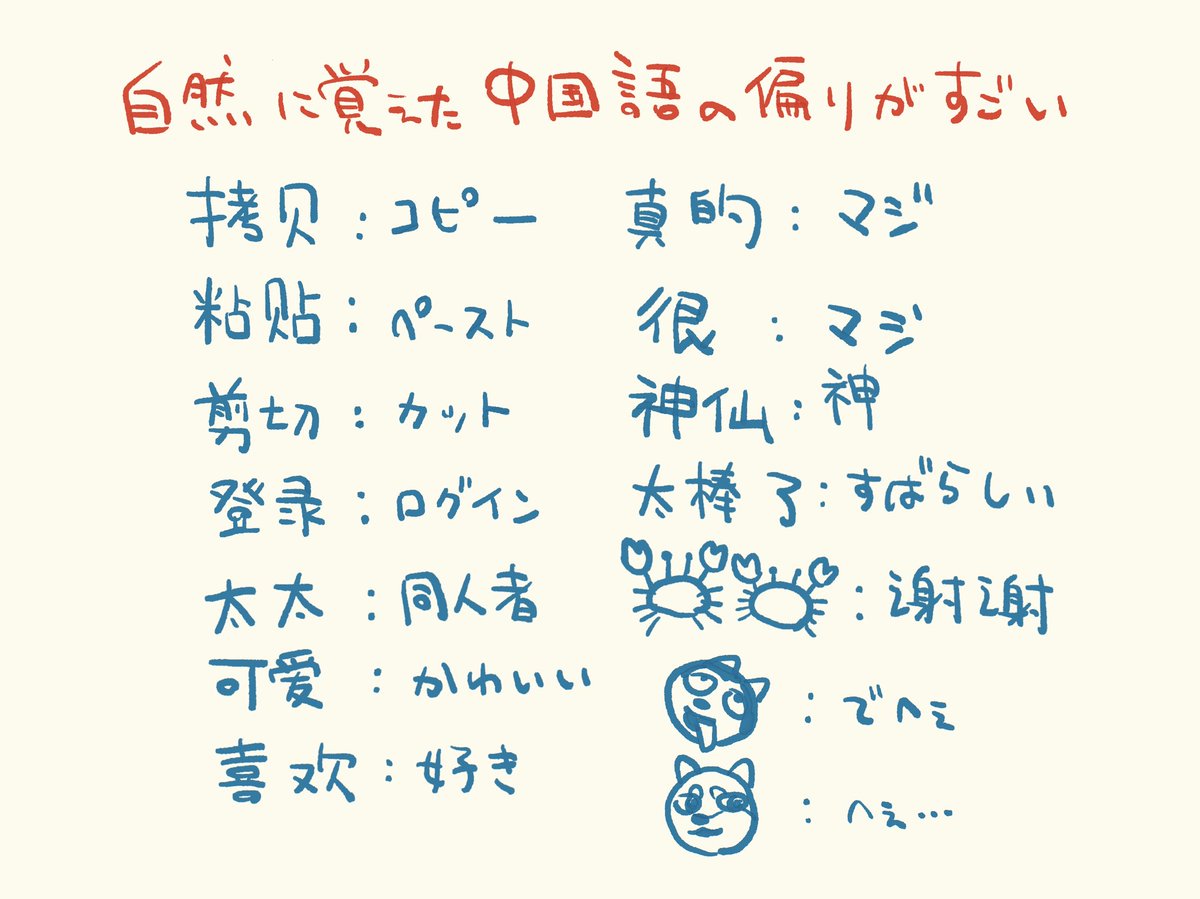 自然に覚えた中国語の偏りがすごい
拷贝：コピー
粘贴：ペースト
剪切：カット
登录：ログイン
太太：同人者
可爱：かわいい
喜欢：好き
真的：マジ
很：マジ
神仙：神
太棒了：すばらしい
：谢谢
：でへえ
：へえ…